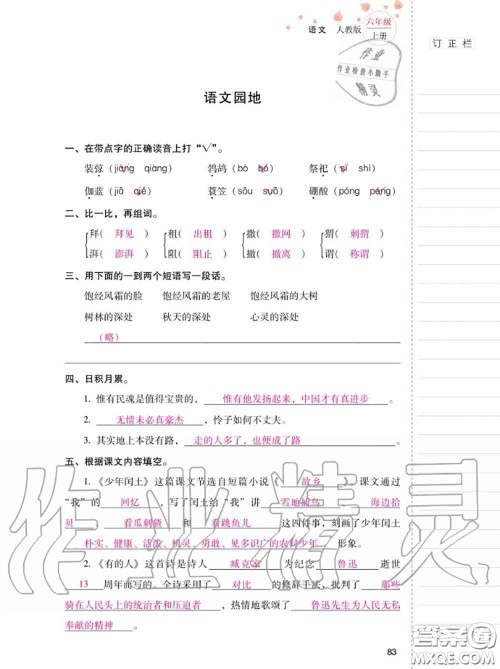 语文 人教版 六年级上册
订正栏
作业
作业检查小助手
精灵
语文园地
一、在带点字的正确读音上打“√”。
装弶（jiàng qiàng） 鸹鸪（bó hó） 祭祀（sì shì）
伽蓝（jiā qié） 蓑笠（sōu suō） 硼酸（póng péng）
二、比一比，再组词。
拜（拜见） 租（出租） 撒（撒网） 猬（刺猬）
湃（澎湃） 阻（阻止） 撤（撤离） 谓（称谓）
三、用下面的一到两个短语写一段话。
饱经风霜的脸 饱经风霜的老屋 饱经风霜的大树
树林的深处 秋天的深处 心灵的深处
（略）
四、日积月累。
1. 惟有民魂是值得宝贵的，惟有他发扬起来，中国才有真进步。
2. 无情未必真豪杰，怜子如何不丈夫。
3. 其实地上本没有路，走的人多了，也便成了路
五、根据课文内容填空。
1.《少年闰土》这篇课文节选自短篇小说《故乡》，课文通过
“我”的回忆，写了闰土给“我”讲雪地捕鸟、海边拾
贝、看瓜刺猹和看跳鱼儿这四件事，刻画了少年闰土
朴实、健康、活泼、机灵、勇敢、见多识广的农村少年形象。
2.《有的人》这首诗是诗人臧克家为纪念鲁迅逝世
13周年而写的。全诗采用了对比的修辞手法，批判了那些
骑在人民头上的统治者和压迫者，热情地歌颂了鲁迅先生为人民无私
奉献的精神。
作业精灵
83
答案圈
MXQE.COM